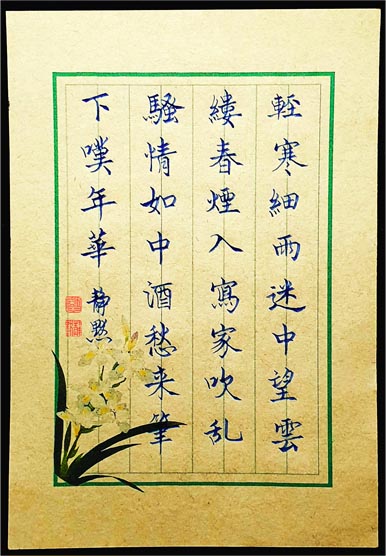 輕寒細雨迷中望雲
縷春煙入寫家吹乱
騷情如中酒愁来筆
下嘆年華
静默